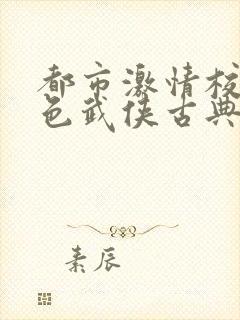 都市激情校
色武侠古典
素辰